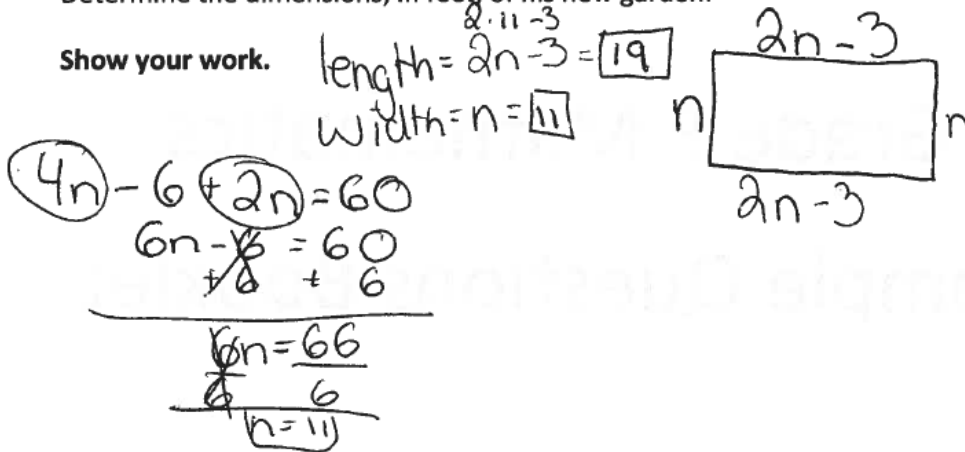 Determine the dimensions, in feet, of his new garden.
Show your work.
2·11-3
length = 2n-3 = 19
width = n = 11
2n-3
n
n
2n-3
4n - 6 + 2n = 60
6n - 6 = 60
+ 6 + 6
6n = 66
6 6
n = 11